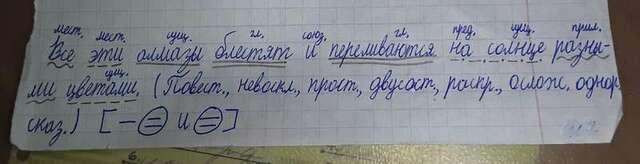 мест. мест. сущ. гл. союз. гл. пред. сущ. прил.
Все эти алмазы блестят и переливаются на солнце разны-
сущ.
ми цветами. (Повест., невоскл., прост., двусост., распр., ослож. однор.
сказ.) [– = и =]